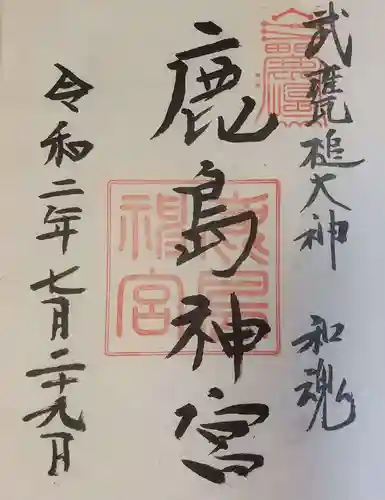 武甕槌大神 和魂
鹿島神宮
令和二年七月二十九日